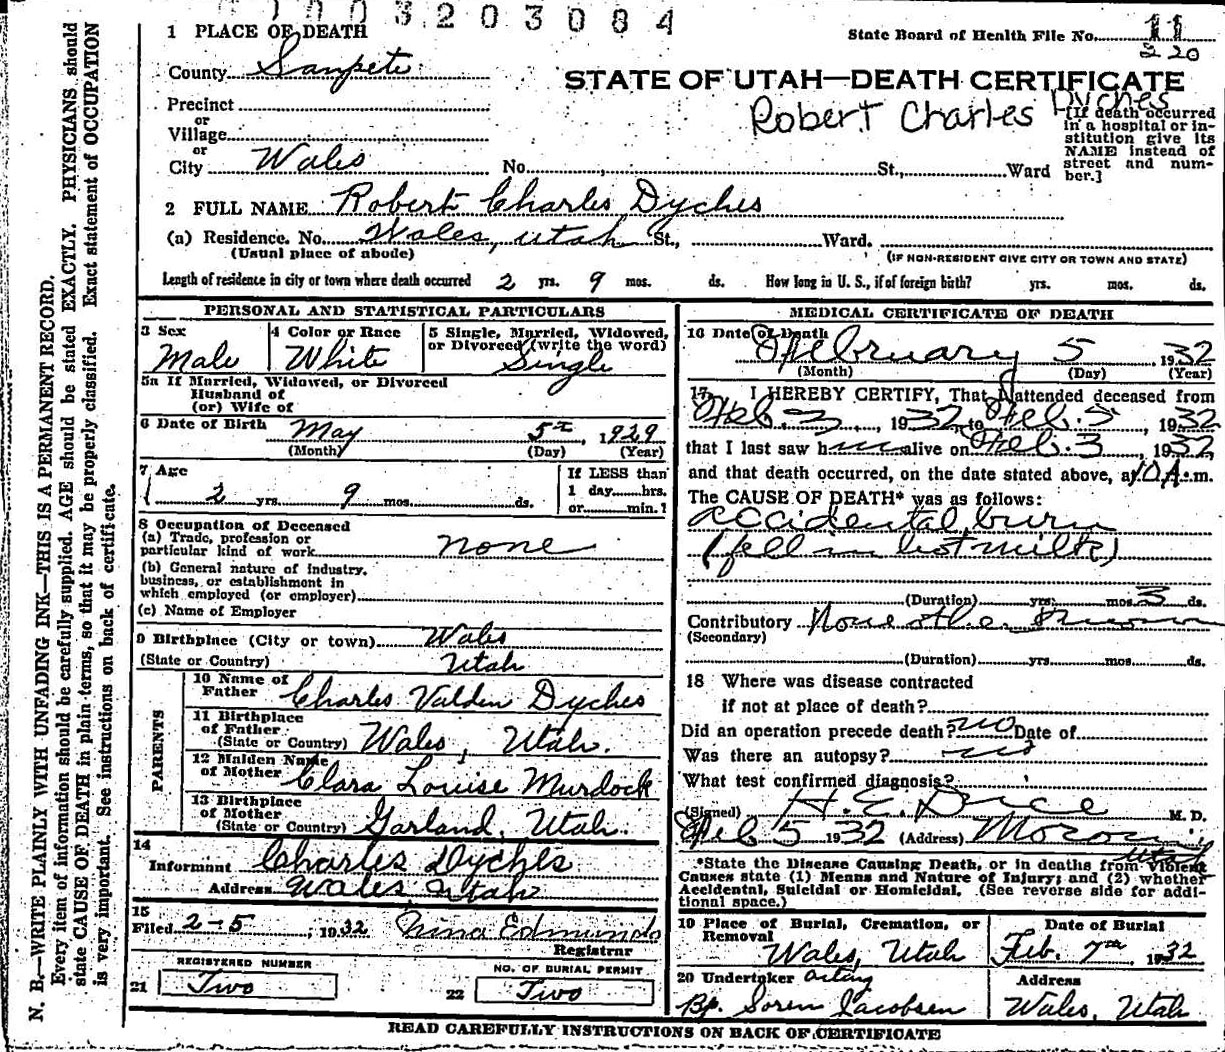 1003203084
State Board of Health File No. 11
220
STATE OF UTAH—DEATH CERTIFICATE
Robert Charles Dyches
[If death occurred
in a hospital or in-
stitution give its
NAME instead of
street and num-
ber.]
1 PLACE OF DEATH
County Sanpete
Precinct
or
Village
or
City Wales No. , St., Ward
2 FULL NAME Robert Charles Dyches
(a) Residence. No. Wales, Utah St., Ward.
(Usual place of abode) (IF NON-RESIDENT GIVE CITY OR TOWN AND STATE)
Length of residence in city or town where death occurred 2 yrs. 9 mos. ds. How long in U. S., if of foreign birth? yrs. mos. ds.
PERSONAL AND STATISTICAL PARTICULARS
3 Sex
Male
4 Color or Race
White
5 Single, Married, Widowed,
or Divorced (write the word)
Single
5a If Married, Widowed, or Divorced
Husband of
(or) Wife of
6 Date of Birth May 5th, 1929
(Month) (Day) (Year)
7 Age
2 yrs. 9 mos. ds.
If LESS than
1 day......hrs.
or......min.?
8 Occupation of Deceased
(a) Trade, profession or
particular kind of work none
(b) General nature of industry,
business, or establishment in
which employed (or employer)
(c) Name of Employer
9 Birthplace (City or town) Wales
(State or Country) Utah
PARENTS
10 Name of
Father Charles Valden Dyches
11 Birthplace
of Father
(State or Country) Wales, Utah.
12 Maiden Name
of Mother Clara Louise Murdock
13 Birthplace
of Mother
(State or Country) Garland, Utah.
14
Informant Charles Dyches
Address Wales Utah
15
Filed 2-5, 1932 Nina Edmunds
Registrar
REGISTERED NUMBER
21 Two
NO. OF BURIAL PERMIT
22 Two
MEDICAL CERTIFICATE OF DEATH
16 Date of Death
February 5 1932
(Month) (Day) (Year)
17 I HEREBY CERTIFY, That I attended deceased from
Feb. 3, 1932, to Feb. 5, 1932
that I last saw h alive on Feb. 3, 1932,
and that death occurred, on the date stated above, at 10 A.m.
The CAUSE OF DEATH* was as follows:
accidental burn
(fell in hot milk)
(Duration) yrs. mos. 3 ds.
Contributory None other known
(Secondary)
(Duration) yrs. mos. ds.
18 Where was disease contracted
if not at place of death?
Did an operation precede death? no Date of
Was there an autopsy? no
What test confirmed diagnosis?
(Signed) H. E. Dice M. D.
Feb 5 1932 (Address) Moroni
Utah
*State the Disease Causing Death, or in deaths from Violent
Causes state (1) Means and Nature of Injury; and (2) whether
Accidental, Suicidal or Homicidal. (See reverse side for addi-
tional space.)
19 Place of Burial, Cremation, or
Removal
Wales, Utah
Date of Burial
Feb. 7th, 1932
20 Undertaker acting
Bp. Soren Jacobsen
Address
Wales, Utah
READ CAREFULLY INSTRUCTIONS ON BACK OF CERTIFICATE
N. B.—WRITE PLAINLY WITH UNFADING INK—THIS IS A PERMANENT RECORD.
Every item of information should be carefully supplied. AGE should be stated EXACTLY. PHYSICIANS should
state CAUSE OF DEATH in plain terms, so that it may be properly classified. Exact statement of OCCUPATION
is very important. See instructions on back of certificate.